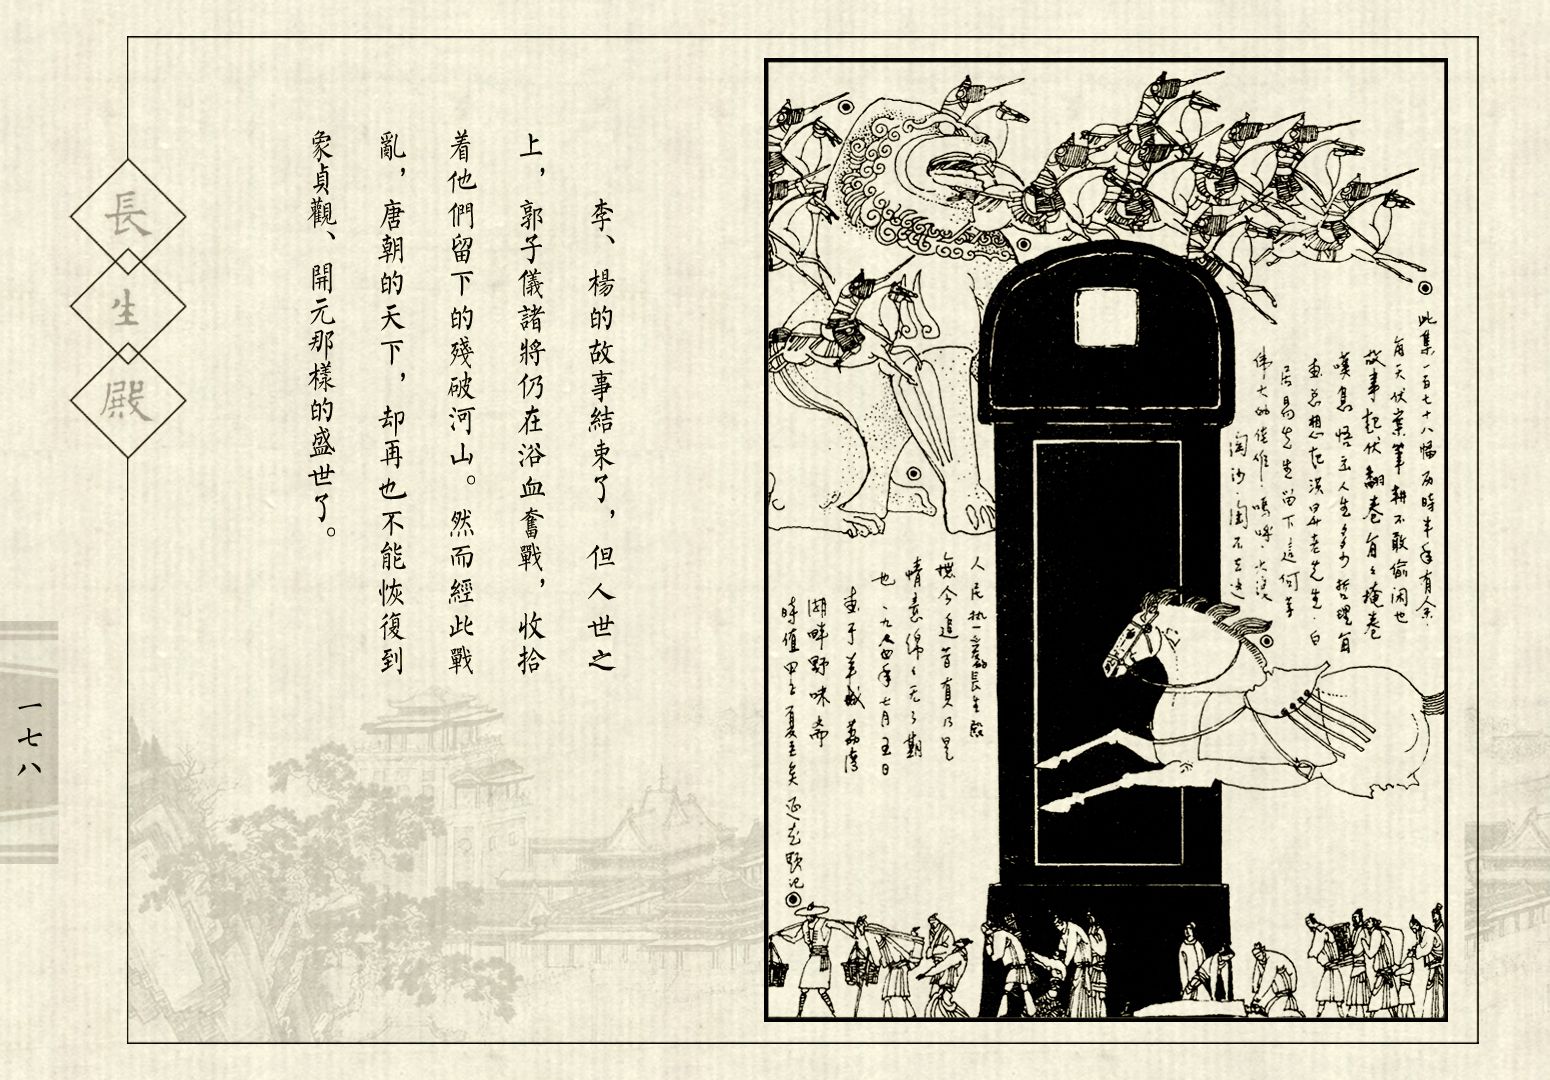 此集一百七十八幅历時半年有余.
每天伏案筆耕不敢偷闲也
故事起伏翻卷每〻掩卷
嘆息悟出人生多少哲理每
画总想起洪昇老先生.白
居易先生留下這何等
伟大的佳作.嗚呼.大浪
淘沙.淘不去
人民热爱的長生殿
撫今追昔真乃是
情意綿〻无了期
也.一九八四年七月五日
画于羊城荔湾
湖畔野味斋
時值甲子夏至矣
李、楊的故事結束了，但人世之
上，郭子儀諸將仍在浴血奮戰，收拾
着他們留下的殘破河山。然而經此戰
亂，唐朝的天下，却再也不能恢復到
象貞觀、開元那樣的盛世了。
長生殿
一七八